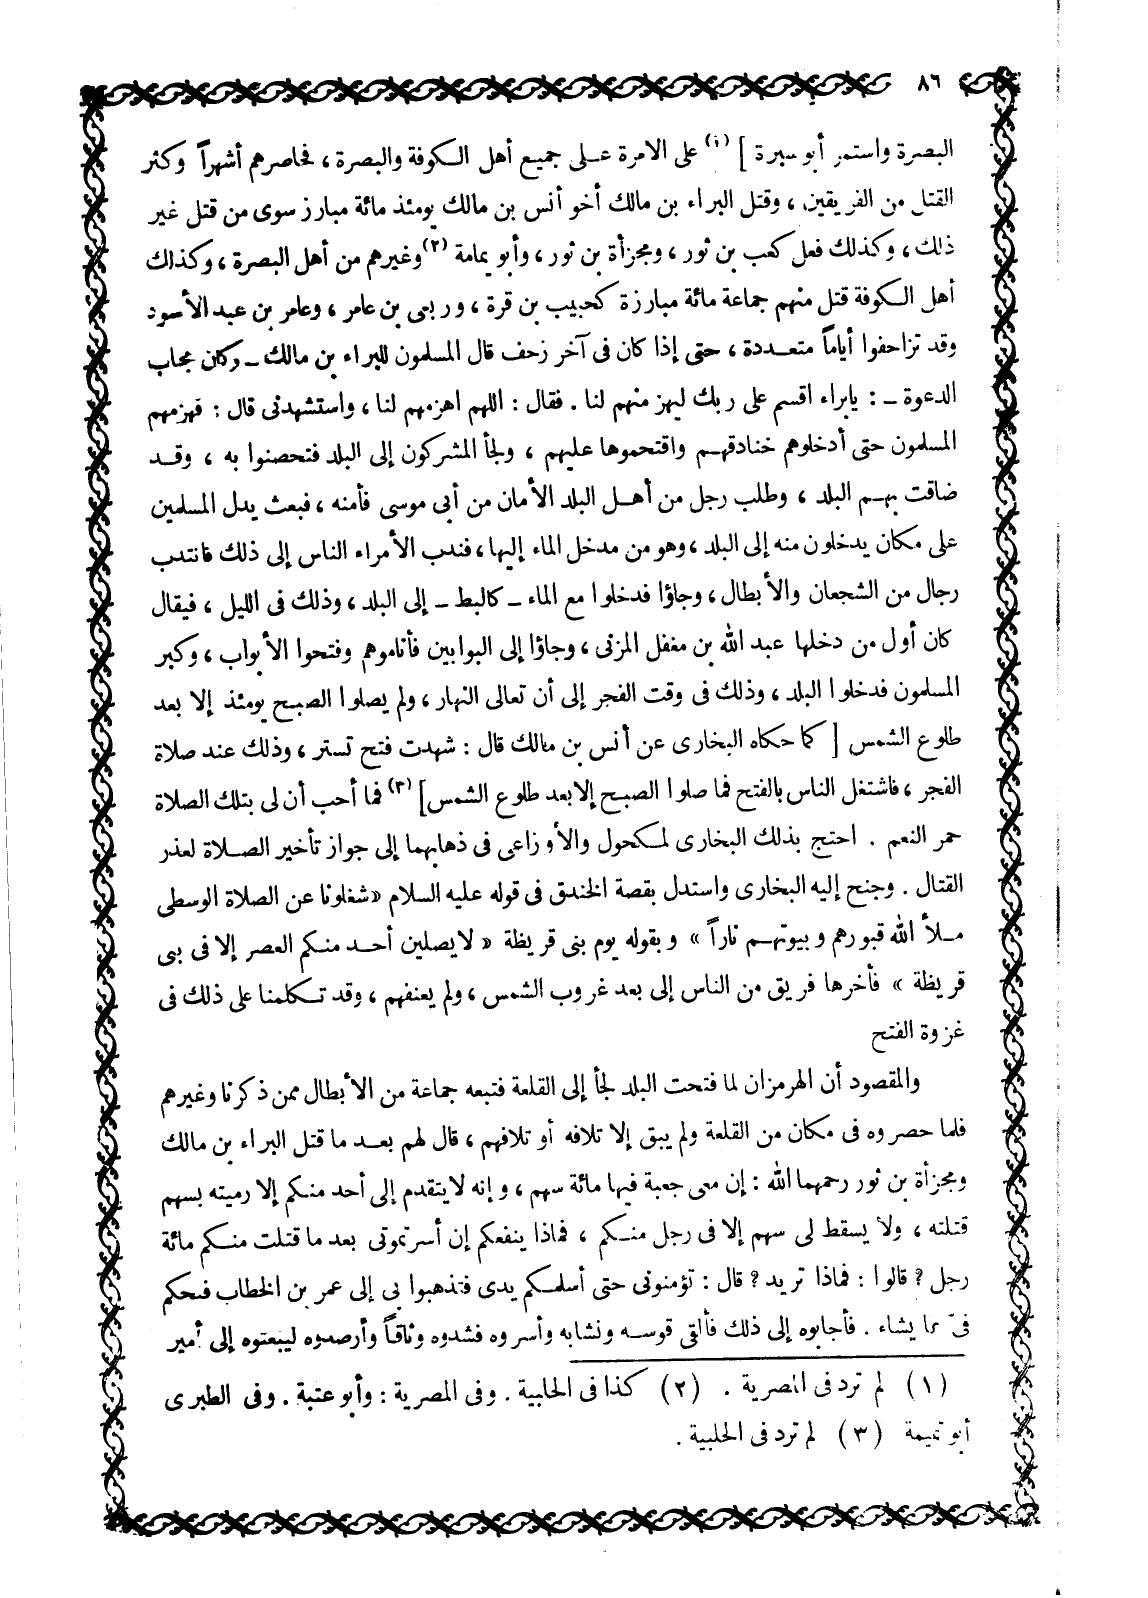 ٨٦
البصرة واستمر أبو سبرة ] (١) على الامرة على جميع أهل الكوفة والبصرة ، فحاصرهم أشهراً وكثر
القتل من الفريقين ، وقتل البراء بن مالك أخو أنس بن مالك يومئذ مائة مبارز سوى من قتل غير
ذلك ، وكذلك فعل كعب بن ثور ، ومجزأة بن ثور ، وأبو يمامة (٢) وغيرهم من أهل البصرة ، وكذلك
أهل الكوفة قتل منهم جماعة مائة مبارزة كحبيب بن قرة ، وربعى بن عامر ، وعامر بن عبد الأسود
وقد تزاحفوا أياماً متعددة ، حتى إذا كان فى آخر زحف قال المسلمون للبراء بن مالك ــ وكان مجاب
الدعوة ــ : يابراء اقسم على ربك ليهزمنهم لنا . فقال : اللهم اهزمهم لنا ، واستشهدنى قال : فهزمهم
المسلمون حتى أدخلوهم خنادقهم واقتحموها عليهم ، ولجأ المشركون إلى البلد فتحصنوا به ، وقد
ضاقت بهم البلد ، وطلب رجل من أهل البلد الأمان من أبى موسى فأمنه ، فبعث يدل المسلمين
على مكان يدخلون منه إلى البلد ، وهو من مدخل الماء إليها ، فندب الأمراء الناس إلى ذلك فانتدب
رجال من الشجعان والأبطال ، وجاؤا فدخلوا مع الماء ــ كالبط ــ إلى البلد ، وذلك فى الليل ، فيقال
كان أول من دخلها عبد الله بن مغفل المزنى ، وجاؤا إلى البوابين فأناموهم وفتحوا الأبواب ، وكبر
المسلمون فدخلوا البلد ، وذلك فى وقت الفجر إلى أن تعالى النهار ، ولم يصلوا الصبح يومئذ إلا بعد
طلوع الشمس [ كما حكاه البخارى عن أنس بن مالك قال : شهدت فتح تستر ، وذلك عند صلاة
الفجر ، فاشتغل الناس بالفتح فما صلوا الصبح إلا بعد طلوع الشمس] (٣) فما أحب أن لى بتلك الصلاة
حمر النعم . احتج بذلك البخارى لمكحول والأوزاعى فى ذهابهما إلى جواز تأخير الصلاة لعذر
القتال . وجنح إليه البخارى واستدل بقصة الخندق فى قوله عليه السلام « شغلونا عن الصلاة الوسطى
ملأ الله قبورهم وبيوتهم ناراً » وبقوله يوم بنى قريظة « لايصلين أحد منكم العصر إلا فى بنى
قريظة » فأخرها فريق من الناس إلى بعد غروب الشمس ، ولم يعنفهم ، وقد تكلمنا على ذلك فى
غزوة الفتح
والمقصود أن الهرمزان لما فتحت البلد لجأ إلى القلعة فتبعه جماعة من الأبطال ممن ذكرنا وغيرهم
فلما حصروه فى مكان من القلعة ولم يبق إلا تلافه أو تلافهم ، قال لهم بعد ما قتل البراء بن مالك
ومجزأة بن ثور رحمهما الله : إن معى جعبة فيها مائة سهم ، وإنه لايتقدم إلى أحد منكم إلا رميته بسهم
قتلته ، ولا يسقط لى سهم إلا فى رجل منكم ، فماذا ينفعكم إن أسرتمونى بعد ما قتلت منكم مائة
رجل ? قالوا : فماذا تريد ? قال : تؤمنونى حتى أسلمكم يدى فتذهبوا بى إلى عمر بن الخطاب فيحكم
فىّ بما يشاء . فأجابوه إلى ذلك فألقى قوسه ونشابه وأسروه فشدوه وثاقاً وأرصدوه ليبعثوه إلى أمير
(١) لم ترد فى المصرية . (٢) كذا فى الحلبية . وفى المصرية : وأبو عتبة . وفى الطبرى
أبو تميمة (٣) لم ترد فى الحلبية .